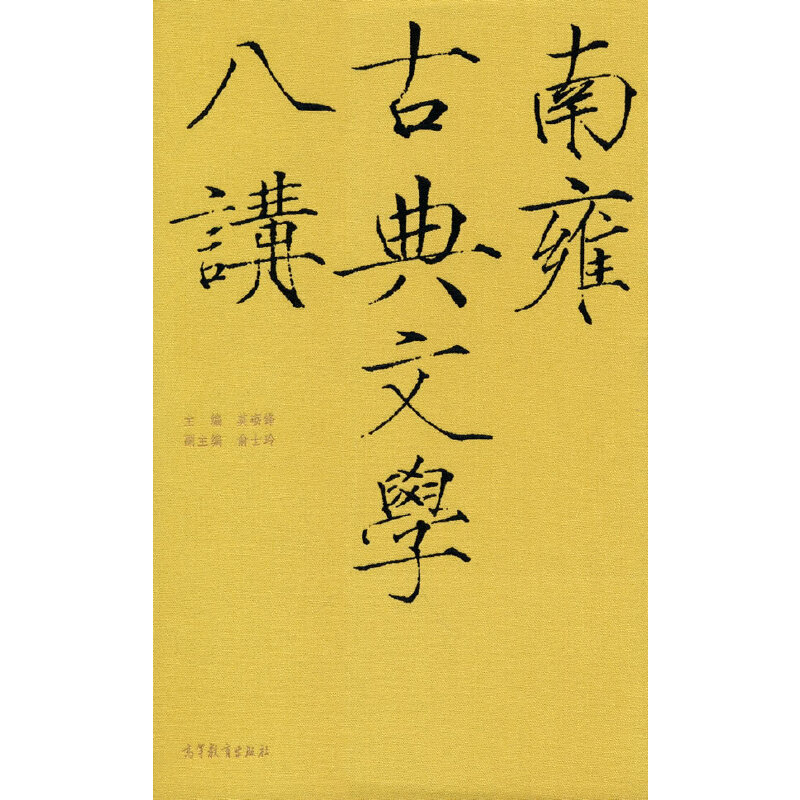 南雍
古典文學
八講
主編 莫砺鋒
副主編 俞士玲
高等教育出版社